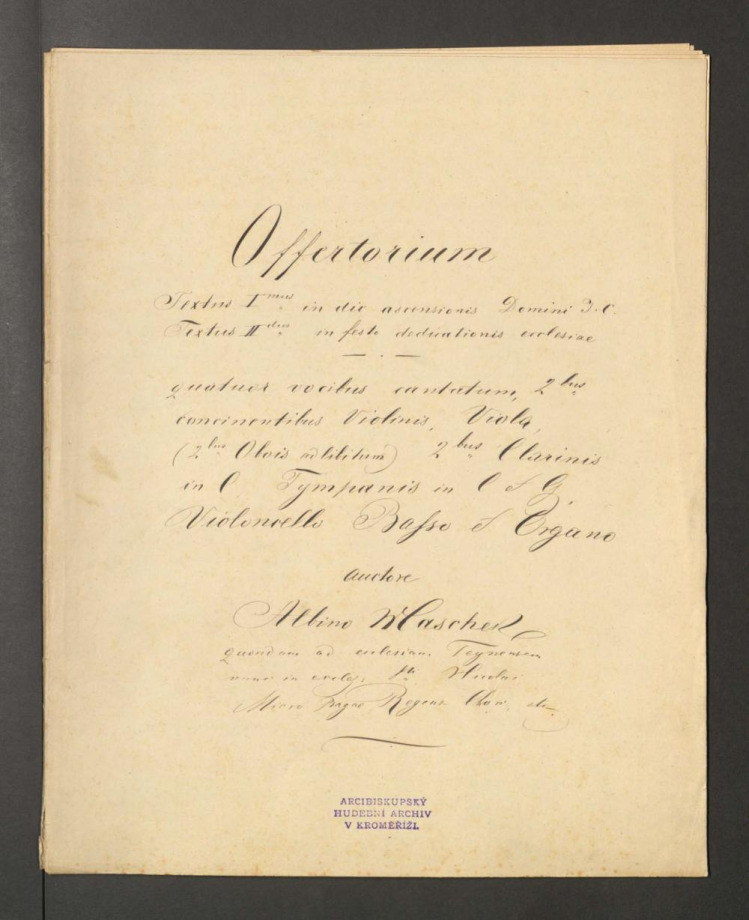 Offertorium
Textus I mus in die ascensionis Domini J. C.
Textus II dus in festo dedicationis ecclesiae
quatuor vocibus cantatum, 2 bus
concinentibus Violinis, Viola,
(2 bus Obois ad libitum) 2 bus Clarinis
in C Tympanis in C & G,
Violoncello Basso & Organo
Auctore
Albino Maschek
quondam ad ecclesiam Teynensem
nunc in eccles. St. Nicolai
Prague Regens Chori etc.
ARCIBISKUPSKÝ
HUDEBNÍ ARCHIV
V KROMĚŘÍŽI.